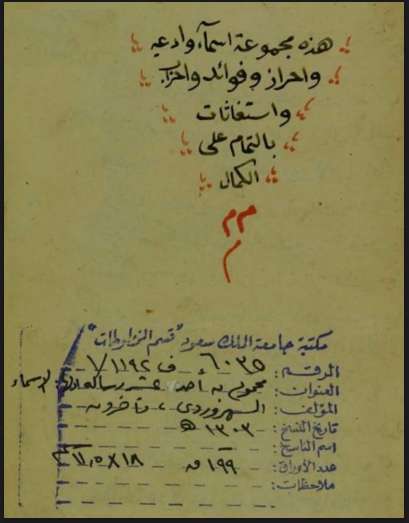 هذه مجموعة اسمآء وادعيه
واحراز وفوائد واحزاب
واستغاثات
بالتمام على
الكمال
م م
م
مكتبة جامعة الملك سعود "قسم المخطوطات"
الرقم: ٦٠٣٥ ف ١١٩٢/١
العنوان: مجموع به احد عشر رسالة الاسماء
المؤلف: السهروردي، وآخرون
تاريخ النسخ: ١٣٠٣ هـ
اسم الناسخ:
عدد الأوراق: ١٩٩ ق ١٨×١١,٥ سم
ملاحظات: